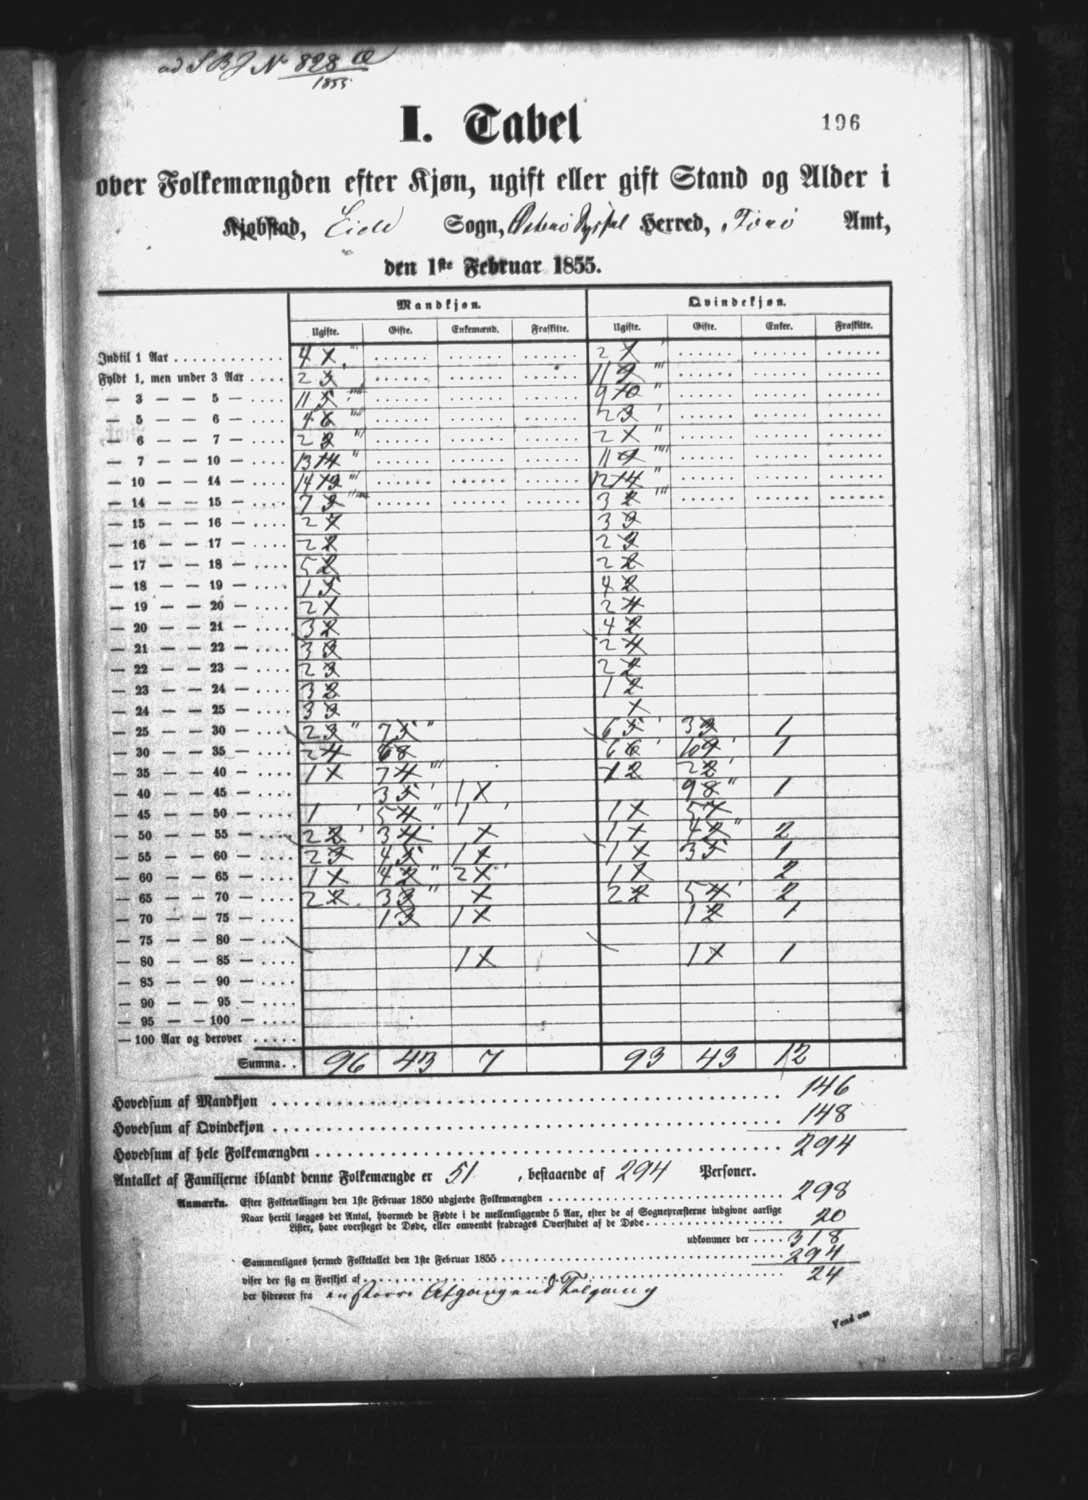 ad S B J N 828
1855
196
I. Tabel
over Folkemængden efter Kjøn, ugift eller gift Stand og Alder i
Kjøbstad, Eide Sogn, Østerø Syssel Herred, Færø Amt,
den 1ste Februar 1855.
Mandkjøn. Qvindekjøn.
Ugifte. Gifte. Enkemænd. Fraskilte. Ugifte. Gifte. Enker. Fraskilte.
Indtil 1 Aar 4 2
Fyldt 1, men under 3 Aar 2 11
— 3 — — 5 — 11 9
— 5 — — 6 — 4 2
— 6 — — 7 — 2 2
— 7 — — 10 — 13 11
— 10 — — 14 — 14 12
— 14 — — 15 — 7 3
— 15 — — 16 — 2 3
— 16 — — 17 — 2 2
— 17 — — 18 — 5 2
— 18 — — 19 — 1 4
— 19 — — 20 — 2 2
— 20 — — 21 — 3 4
— 21 — — 22 — 3 2
— 22 — — 23 — 2 2
— 23 — — 24 — 3 1
— 24 — — 25 — 3
— 25 — — 30 — 2 7 6 3 1
— 30 — — 35 — 2 6 6 10 1
— 35 — — 40 — 1 7 1 2
— 40 — — 45 — 3 1 9 1
— 45 — — 50 — 1 5 1 1 5
— 50 — — 55 — 2 3 1 4 2
— 55 — — 60 — 2 4 1 1 3 1
— 60 — — 65 — 1 4 2 1 2
— 65 — — 70 — 2 3 2 5 2
— 70 — — 75 — 1 1 1 1
— 75 — — 80 —
— 80 — — 85 — 1 1 1
— 85 — — 90 —
— 90 — — 95 —
— 95 — — 100 —
— 100 Aar og derover
Summa. 96 43 7 93 43 12
Hovedsum af Mandkjøn 146
Hovedsum af Qvindekjøn 148
Hovedsum af hele Folkemængden 294
Antallet af Familierne iblandt denne Folkemængde er 51, bestaaende af 294 Personer.
Anmærkn. Efter Folketællingen den 1ste Februar 1850 udgjorde Folkemængden 298
Naar hertil lægges det Antal, hvormed de Fødte i de mellemliggende 5 Aar, efter de af Sognepræsterne indgivne aarlige
Lister, have oversteget de Døde, eller omvendt fradrages Overskudet af de Døde 20
udkommer der 318
Sammenlignes hermed Folketallet den 1ste Februar 1855 294
viser der sig en Forskjel af 24
der hidrører fra en større Afgang end Tilgang
Vend om